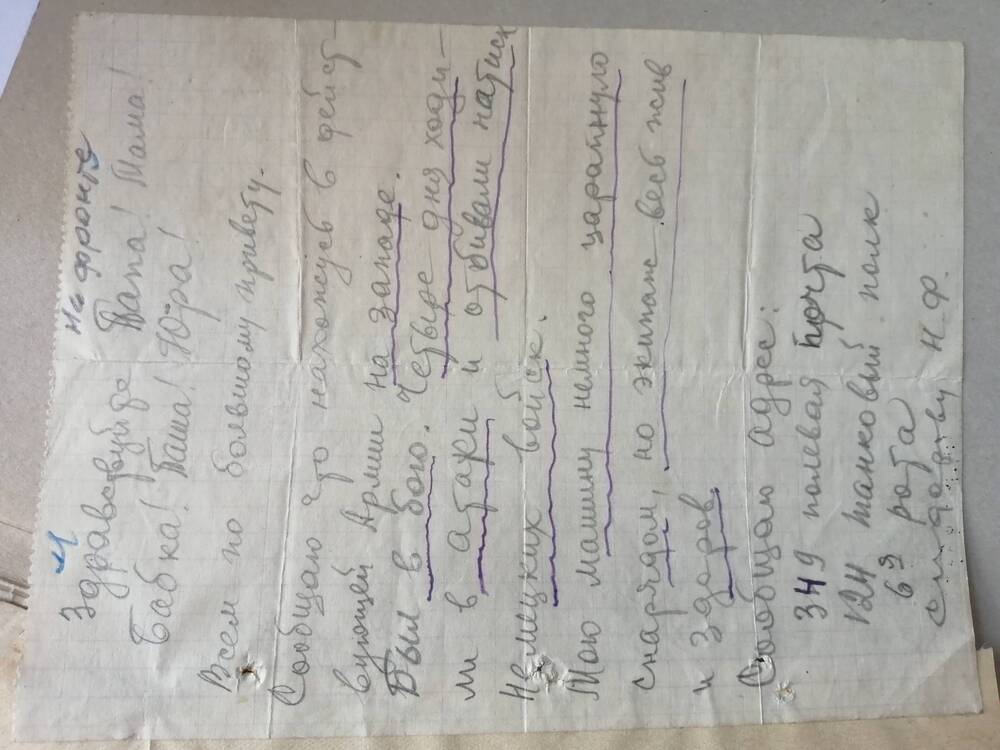 На фронте
Здравствуйте Папа! Мама!
Бабка! Паша! Юра!
Всем по большому привету.
Сообщаю что нахожусь в дейст-
вующей Армии на западе.
Был в бою. Четыре дня ходи-
ли в атаки и отбивали натиск
Немецких войск.
Мою машину немного царапнуло
снарядом, но экипаж весь жив
и здоров.
Сообщаю адрес:
349 полевая почта
124 танковый полк
6я рота
Сидорову Н.Ф.